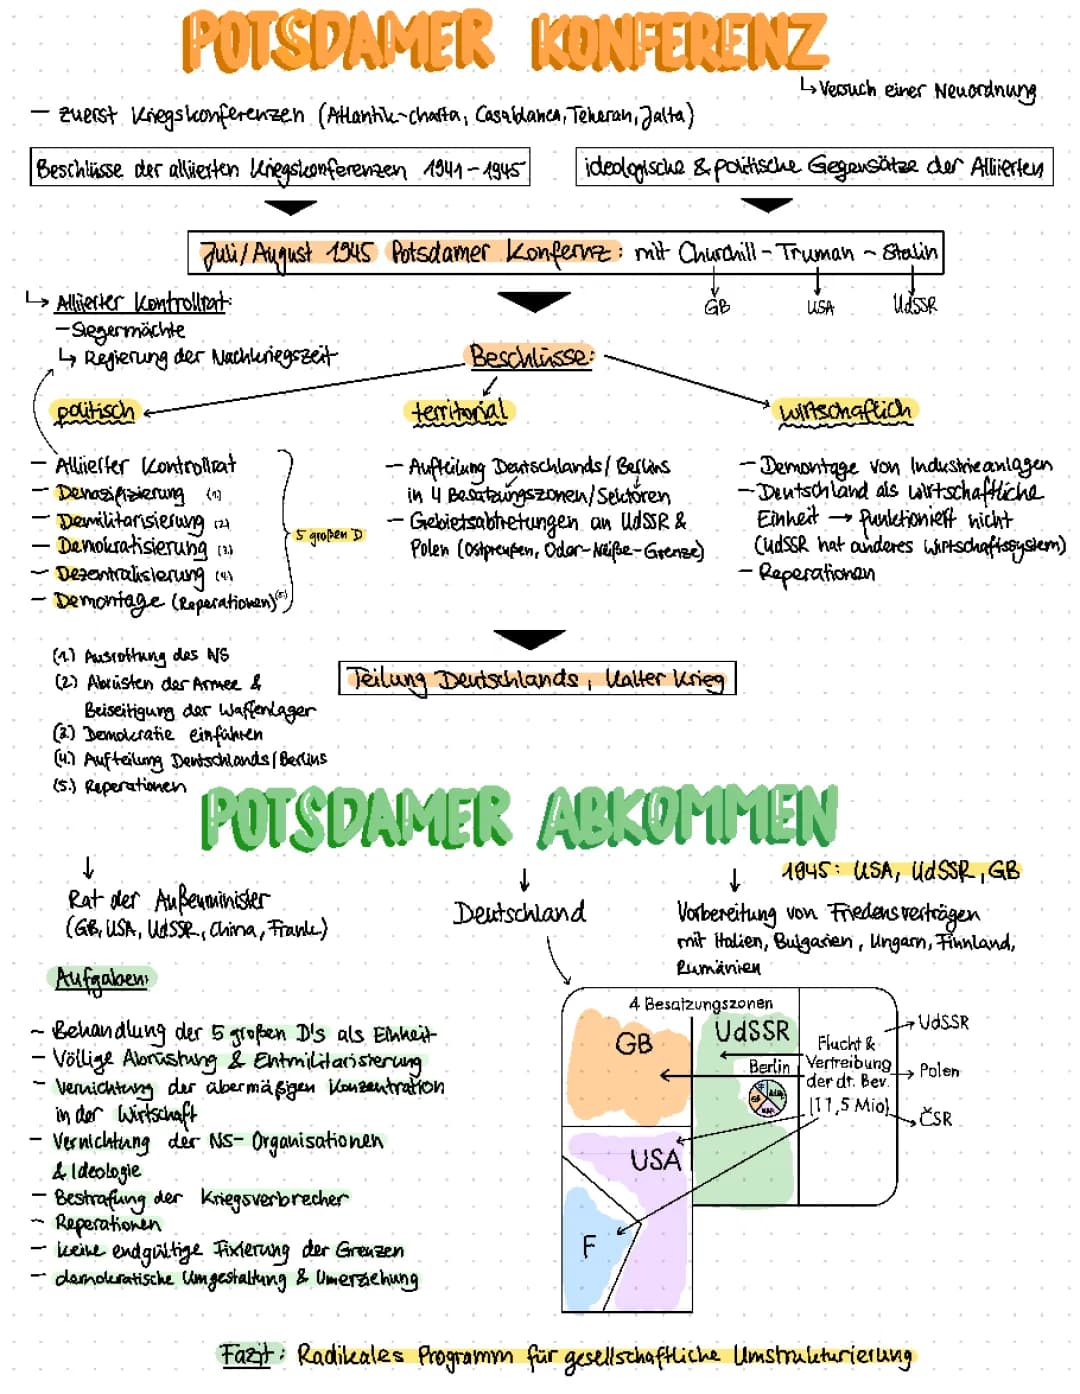 POTSDAMER KONFERENZ
↳ Versuch einer Neuordnung
– zuerst Kriegskonferenzen (Atlantik-charta, Casablanca, Teheran, Jalta)
Beschlüsse der alliierten Kriegskonferenzen 1941 – 1945
ideologische & politische Gegensätze der Alliierten
Juli/August 1945 Potsdamer Konfernz: mit Churchill – Truman – Stalin
GB USA UdSSR
↳ Alliierter Kontrollrat:
– Siegermächte
↳ Regierung der Nachkriegszeit
Beschlüsse:
politisch
– Alliierter Kontrollrat
– Denazifizierung (1)
– Demilitarisierung (2)
– Demokratisierung (3)
– Dezentralisierung (4)
– Demontage (Reperationen) (5)
5 großen D
territorial
– Aufteilung Deutschlands/Berlins
in 4 Besatzungszonen/Sektoren
– Gebietsabtretungen an UdSSR &
Polen (Ostpreußen, Oder-Neiße-Grenze)
wirtschaftlich
– Demontage von Industrieanlagen
– Deutschland als wirtschaftliche
Einheit → funktioniert nicht
(UdSSR hat anderes Wirtschaftssystem)
– Reperationen
(1.) Ausrottung des NS
(2) Abrüsten der Armee &
Beiseitigung der Waffenlager
(3.) Demokratie einführen
(4.) Aufteilung Deutschlands/Berlins
(5.) Reperationen
Teilung Deutschlands, Kalter Krieg
POTSDAMER ABKOMMEN
1945: USA, UdSSR, GB
Rat der Außenminister
(GB, USA, UdSSR, China, Frank.)
Deutschland
Vorbereitung von Friedensverträgen
mit Italien, Bulgarien, Ungarn, Finnland,
Rumänien
Aufgaben:
– Behandlung der 5 großen D's als Einheit
– Völlige Abrüstung & Entmilitarisierung
– Vernichtung der übermäßigen Konzentration
in der Wirtschaft
– Vernichtung der NS-Organisationen
& Ideologie
– Bestrafung der Kriegsverbrecher
– Reperationen
– keine endgültige Fixierung der Grenzen
– demokratische Umgestaltung & Umerziehung
4 Besatzungszonen
GB
UdSSR
Berlin
USA
F
Flucht &
Vertreibung
der dt. Bev.
(11,5 Mio)
UdSSR
Polen
ČSR
Fazit: Radikales Programm für gesellschaftliche Umstrukturierung